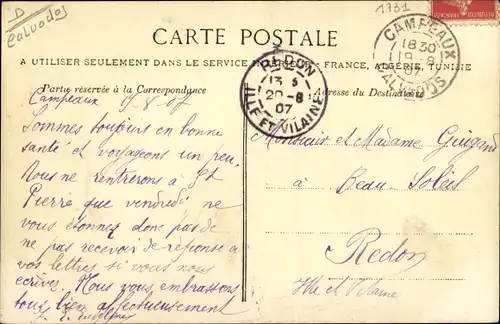 D
Calvados
1731
CARTE POSTALE
A UTILISER SEULEMENT DANS LE SERVICE FRANCE, ALGÉRIE, TUNISIE
CAMPEAUX
18 30
19 -8
07
CALVADOS
REDON
13
20 -8
07
ILLE ET VILAINE
Partie réservée à la Correspondance
Adresse du Destinataire
Campeaux 19/8/07
Sommes toujours en bonne
santé et voyageons un peu.
Nous ne rentrerons à St
Pierre que vendredi ne
vous étonnez donc pas de
ne pas recevoir de réponse à
vos lettres si vous nous
écrivez. Nous vous embrassons
tous bien affectueusement
Monsieur et Madame
à
Beau Soleil
Redon
Ille et Vilaine